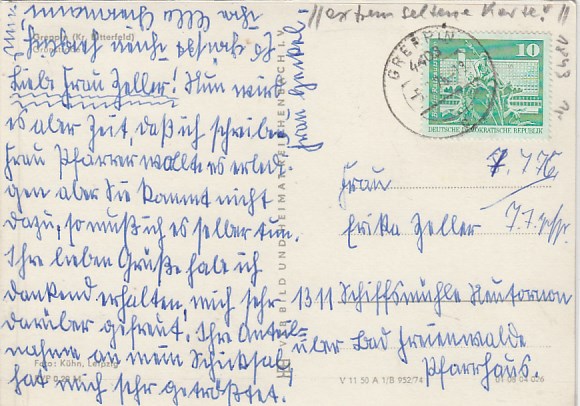 Greppin (Kr. Bitterfeld)
Liebe Frau Zeller! Nun wird
es aber Zeit, daß ich schreibe.
Frau Pfarrer wollte es erledi-
gen aber Sie kommt nicht
dazu, so muß ich es selber tun.
Ihre lieben Grüße habe ich
dankend erhalten, mich sehr
darüber gefreut. Ihre Anteil-
nahme an mein Schicksal
hat mich sehr getröstet.
Foto: Kühn, Leipzig
VEB BILD UND HEIMAT REICHENBACH I. V.
V 11 50 A 1/B 952/74
01 08 04 026
//extrem seltene Karte!//
GREPPIN
4409
10
DEUTSCHE DEMOKRATISCHE REPUBLIK
Frau
Erika Zeller
1311 Schiffsmühle Neutornow
über Bad Freienwalde
Pfarrhaus.